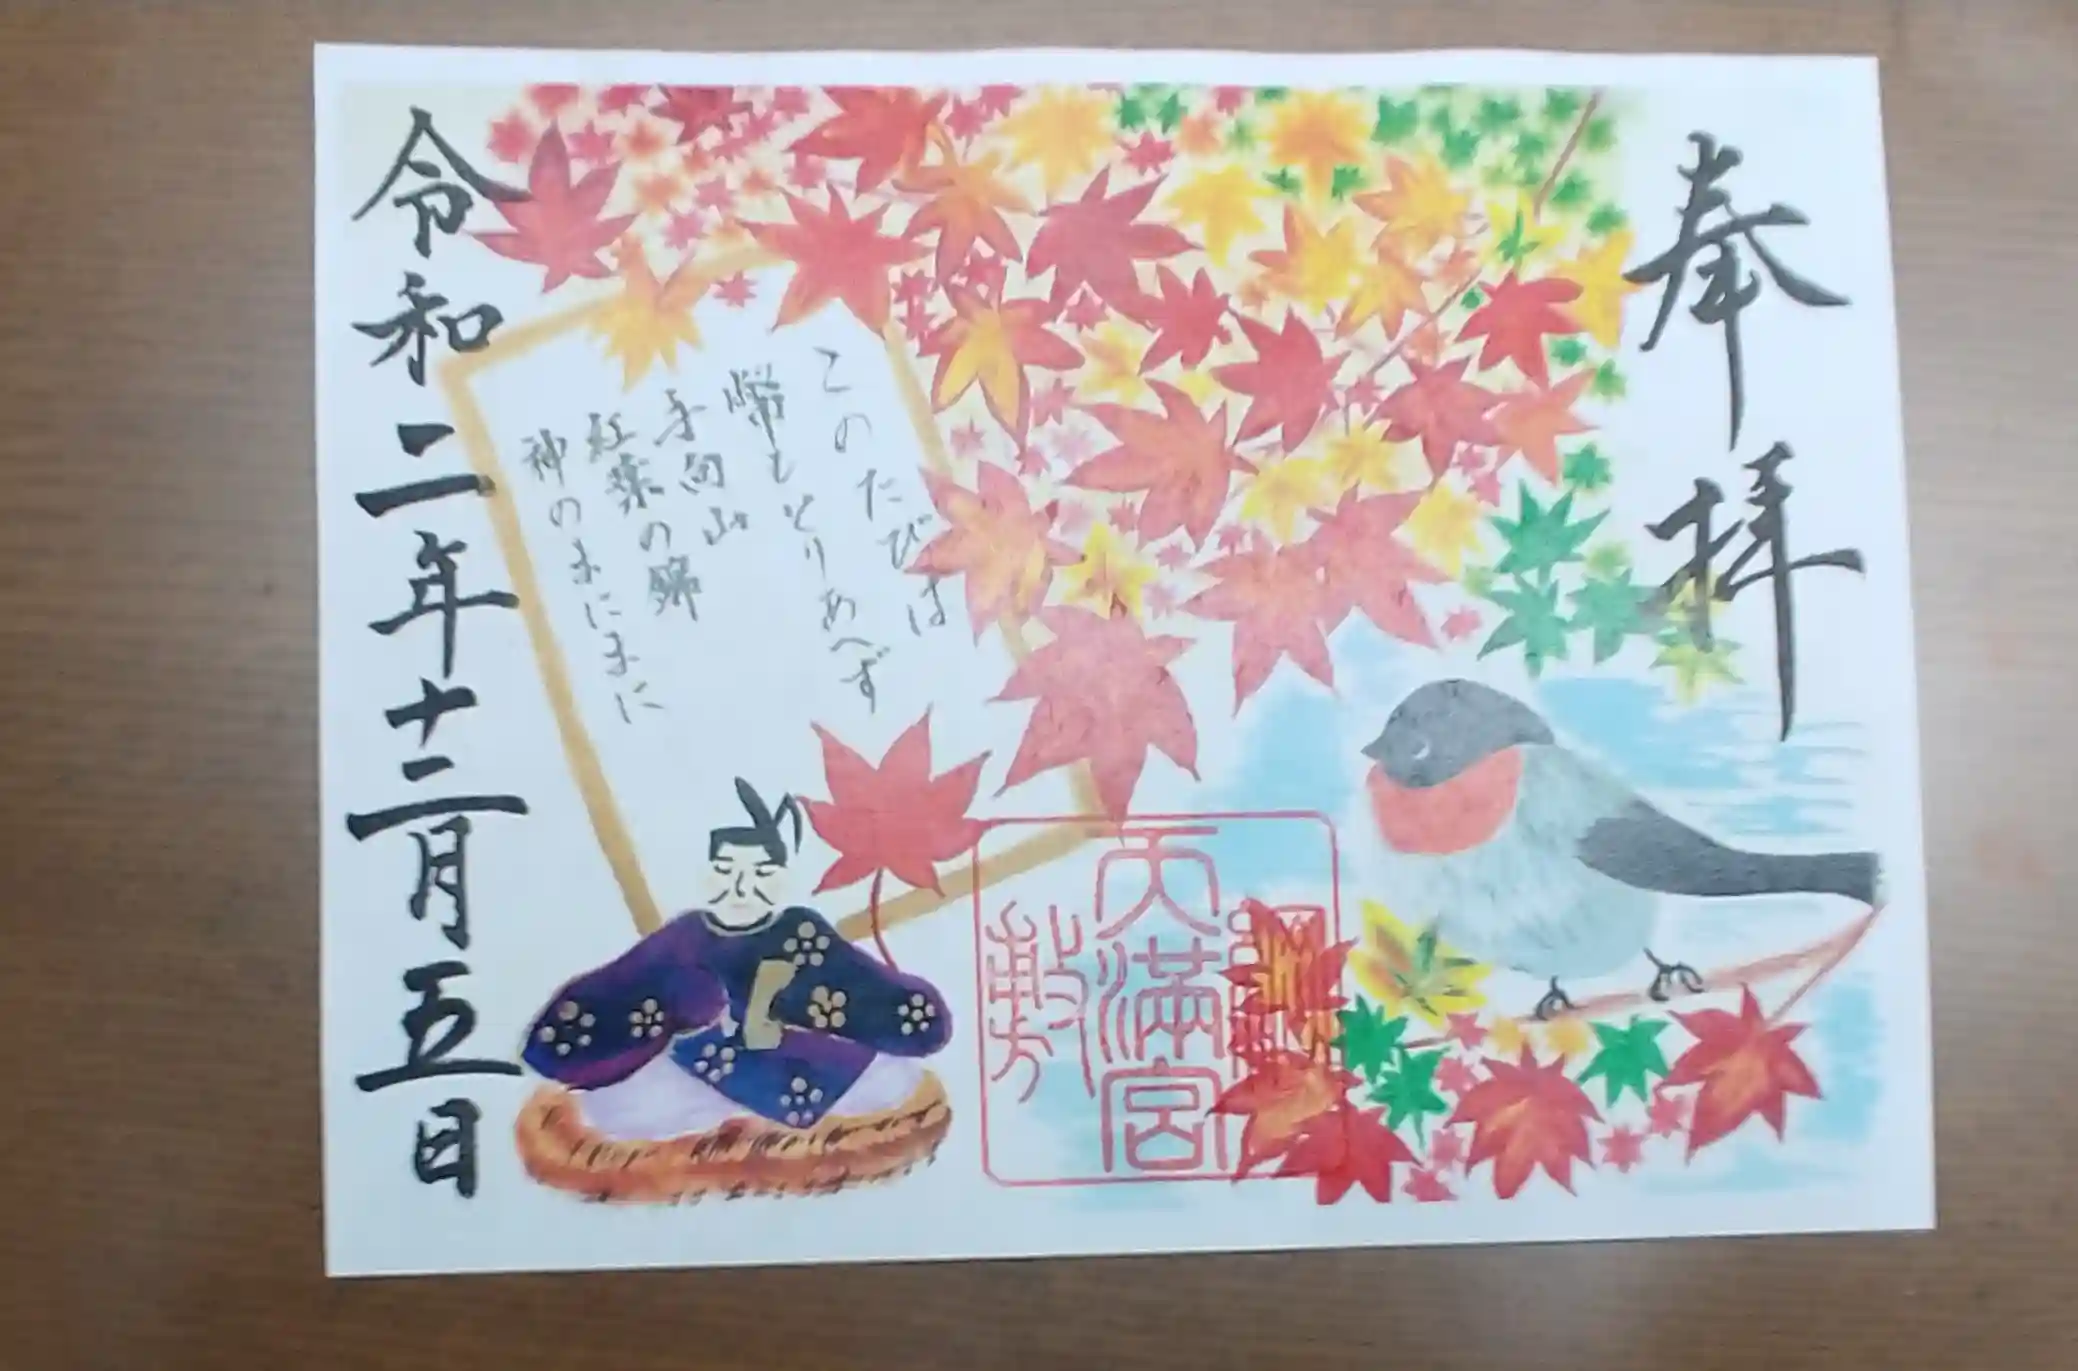 奉拝
このたびは
幣もとりあへず
手向山
紅葉の錦
神のまにまに
綱敷
天満宮
令和二年十二月五日